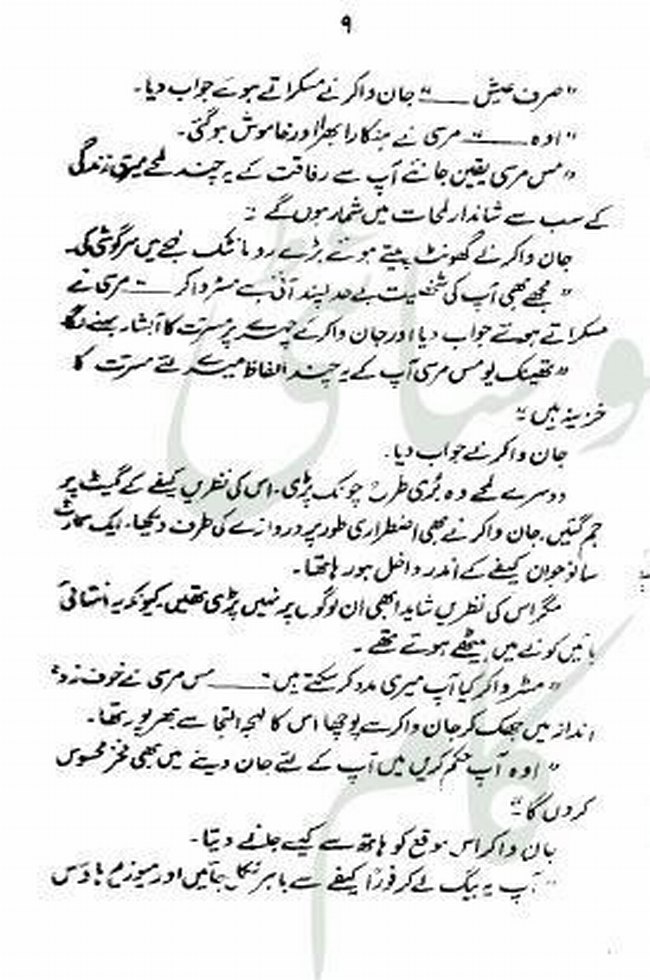 ۹
"صرف عیش ——" جان واکر نے مسکراتے ہوئے جواب دیا۔
"اوہ ——" مرسی نے ہنکارا بھرا اور خاموش ہو گئی۔
"مس مرسی یقین جانئے آپ سے رفاقت کے یہ چند لمحے میری زندگی
کے سب سے شاندار لمحات میں شمار ہوں گے"
جان واکر نے گھونٹ پیتے ہوئے بڑے رومانٹک لہجے میں سرگوشی کی۔
"مجھے بھی آپ کی شخصیت بے حد پسند آئی ہے مسٹر واکر ——" مرسی نے
مسکراتے ہوئے جواب دیا اور جان واکر کے چہرے پر مسرت کا آبشار بہنے لگا
"تھینک یو مس مرسی آپ کے یہ چند الفاظ میرے لئے مسرت کا
خزینہ ہیں"
جان واکر نے جواب دیا۔
دوسرے لمحے وہ بُری طرح چونک پڑی۔ اس کی نظریں کیفے کے گیٹ پر
جم گئیں۔ جان واکر نے بھی اضطراری طور پر دروازے کی طرف دیکھا۔ ایک سمارٹ
سا نوجوان کیفے کے اندر داخل ہو رہا تھا۔
مگر اس کی نظریں شاید ابھی ان لوگوں پر نہیں پڑی تھیں کیونکہ یہ انتہائی
بائیں کونے میں بیٹھے ہوئے تھے۔
"مسٹر واکر کیا آپ میری مدد کر سکتے ہیں" —— مس مرسی نے خوف زدہ
انداز میں جھک کر جان واکر سے پوچھا اس کا لہجہ التجا سے بھرپور تھا۔
"اوہ آپ حکم کریں میں آپ کے لئے جان دینے میں بھی فخر محسوس
کروں گا"
جان واکر اس موقع کو ہاتھ سے کیسے جانے دیتا۔
"آپ یہ بیگ لے کر فوراً کیفے سے باہر نکل جائیں اور میوزم ہاؤس